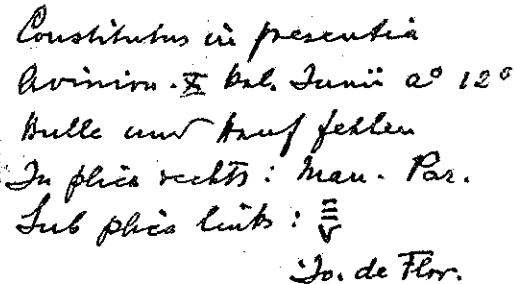 Constitutus in presentia
Avinion. X kal. Junii a° 12°
Bulle und Hanf fehlen
In plica rechts: Man. Par.
Sub plica links:
Jo. de Flor.